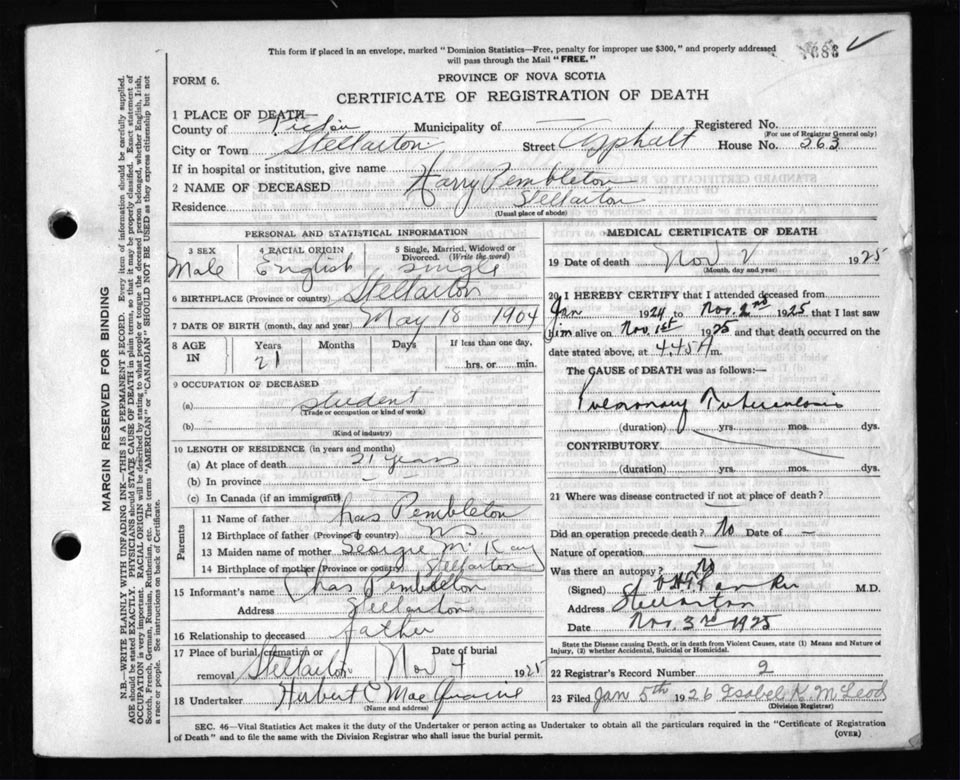 This form if placed in an envelope, marked "Dominion Statistics—Free, penalty for improper use $300," and properly addressed
will pass through the Mail "FREE."
FORM 6.
PROVINCE OF NOVA SCOTIA
CERTIFICATE OF REGISTRATION OF DEATH
1 PLACE OF DEATH—
County of Pictou Municipality of — Registered No.
(For use of Registrar General only)
City or Town Stellarton Street Asphalt House No. 363
If in hospital or institution, give name
2 NAME OF DECEASED Harry Pembleton
Residence Stellarton
(Usual place of abode)
PERSONAL AND STATISTICAL INFORMATION
3 SEX Male
4 RACIAL ORIGIN English
5 Single, Married, Widowed or Divorced. (Write the word) single
6 BIRTHPLACE (Province or country) Stellarton
7 DATE OF BIRTH (month, day and year) May 18 1904
8 AGE IN Years 21 Months Days If less than one day, hrs. or min.
9 OCCUPATION OF DECEASED
(a) student
(Trade or occupation or kind of work)
(b)
(Kind of industry)
10 LENGTH OF RESIDENCE (in years and months)
(a) At place of death 21 years
(b) In province — —
(c) In Canada (if an immigrant)
Parents
11 Name of father Chas Pembleton
12 Birthplace of father (Province or country) N S
13 Maiden name of mother Georgie McKay
14 Birthplace of mother (Province or country) Stellarton
15 Informant's name Chas Pembleton
Address Stellarton
16 Relationship to deceased father
17 Place of burial, cremation or removal Stellarton
Date of burial Nov 4 1925
18 Undertaker Herbert C MacQuarrie
(Name and address)
MEDICAL CERTIFICATE OF DEATH
19 Date of death Nov 2 1925
(Month, day and year)
20 I HEREBY CERTIFY that I attended deceased from
Jan 1924 to Nov. 2nd 1925 that I last saw
him alive on Nov. 1st 1925 and that death occurred on the
date stated above, at 4.45 A m.
The CAUSE of DEATH was as follows:—
Pulmonary Tuberculosis
(duration) yrs. mos. dys.
CONTRIBUTORY
(duration) yrs. mos. dys.
21 Where was disease contracted if not at place of death?
—
Did an operation precede death? No Date of —
Nature of operation —
Was there an autopsy? No
(Signed) M.D.
Address Stellarton
Date Nov. 3rd 1925
State the Disease causing Death, or in death from Violent Causes, state (1) Means and Nature of
Injury, (2) whether Accidental, Suicidal or Homicidal.
22 Registrar's Record Number 2
23 Filed Jan 5th 1926 Isabel K. McLeod
(Division Registrar)
SEC. 46—Vital Statistics Act makes it the duty of the Undertaker or person acting as Undertaker to obtain all the particulars required in the "Certificate of Registration
of Death" and to file the same with the Division Registrar who shall issue the burial permit.
(OVER)
MARGIN RESERVED FOR BINDING
N.B.—WRITE PLAINLY WITH UNFADING INK—THIS IS A PERMANENT RECORD. Every item of information should be carefully supplied.
AGE should be stated EXACTLY. PHYSICIANS should STATE CAUSE OF DEATH in plain terms, so that it may be properly classified. Exact statement of
OCCUPATION is very important. RACIAL ORIGIN will be described by stating to what people or tongue the deceased person belonged, whether English, Irish,
Scotch, French, German, Russian, Ruthenian, etc. The terms "AMERICAN" or "CANADIAN" SHOULD NOT BE USED as they express citizenship but not
a race or people. See instructions on back of Certificate.